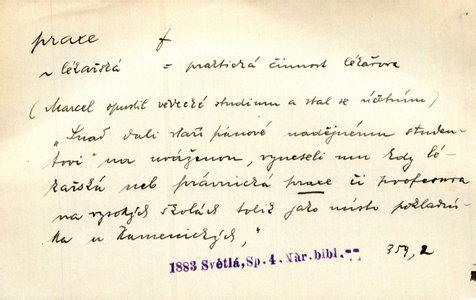 praxe f
~ lékařská = praktická činnost lékařova
(Marcel opustil vědecké studium a stal se účetním)
„Snad dali staří pánové nadějnému studen-
tovi na uváženou, vynesli mu kdy lé-
kařská neb právnická praxe či profesura
na vysokých školách tolik jako místo pokladní-
ka u Kamenických,"
1883 Světlá, Sp. 4. Nár. bibl. 359, 2